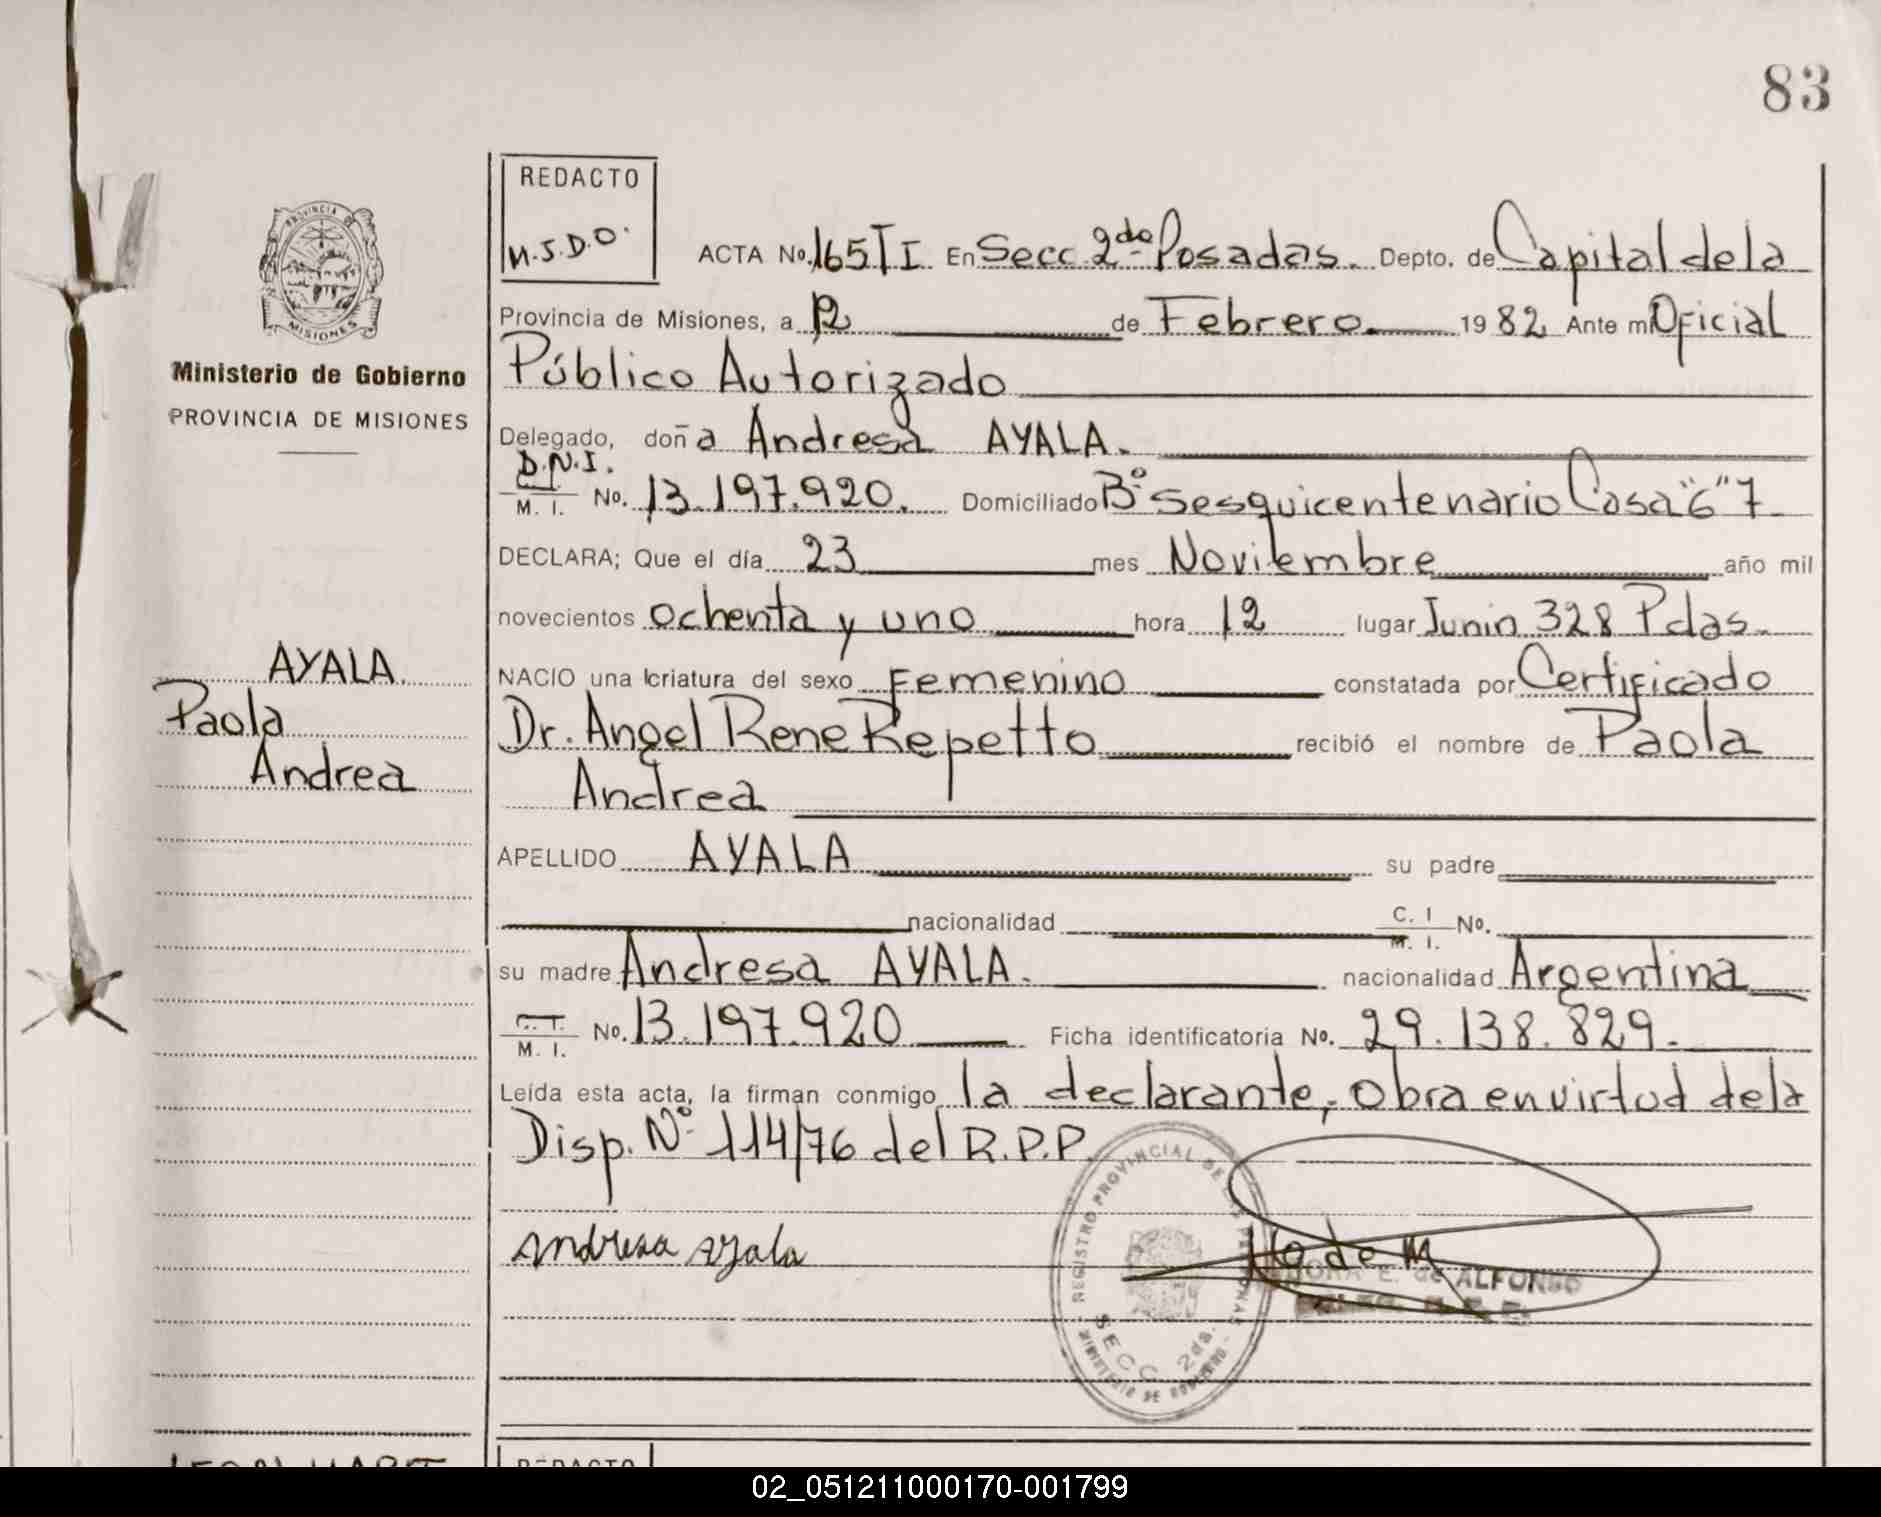 83
REDACTO
N.S.D.O.
PROVINCIA DE
MISIONES
Ministerio de Gobierno
PROVINCIA DE MISIONES
ACTA No. 165 T I En Secc. 2da Posadas. Depto. de Capital de la
Provincia de Misiones, a 12 de Febrero 19 82 Ante mi Oficial
Público Autorizado
Delegado, doña Andresa AYALA.
D.N.I.
M. I. No. 13.197.920. Domiciliado Bº Sesquicentenario Casa "6" 7
DECLARA; Que el día 23 mes Noviembre año mil
novecientos ochenta y uno hora 12 lugar Junin 328 Pdas.
AYALA.
Paola
Andrea
NACIO una criatura del sexo Femenino constatada por Certificado
Dr. Angel Rene Repetto recibió el nombre de Paola
Andrea
APELLIDO AYALA su padre
nacionalidad C. I. M. I. No.
su madre Andresa AYALA. nacionalidad Argentina
C. I. M. I. No. 13.197.920 Ficha identificatoria No. 29.138.829.
Leída esta acta, la firman conmigo la declarante, Obra en virtud de la
Disp. Nº 114/76 del R.P.P.
REGISTRO PROVINCIAL DE LAS PERSONAS
SECC. 2da.
MINISTERIO DE GOBIERNO
Andresa Ayala
E. de ALFONSO
REDACTO
02_051211000170-001799